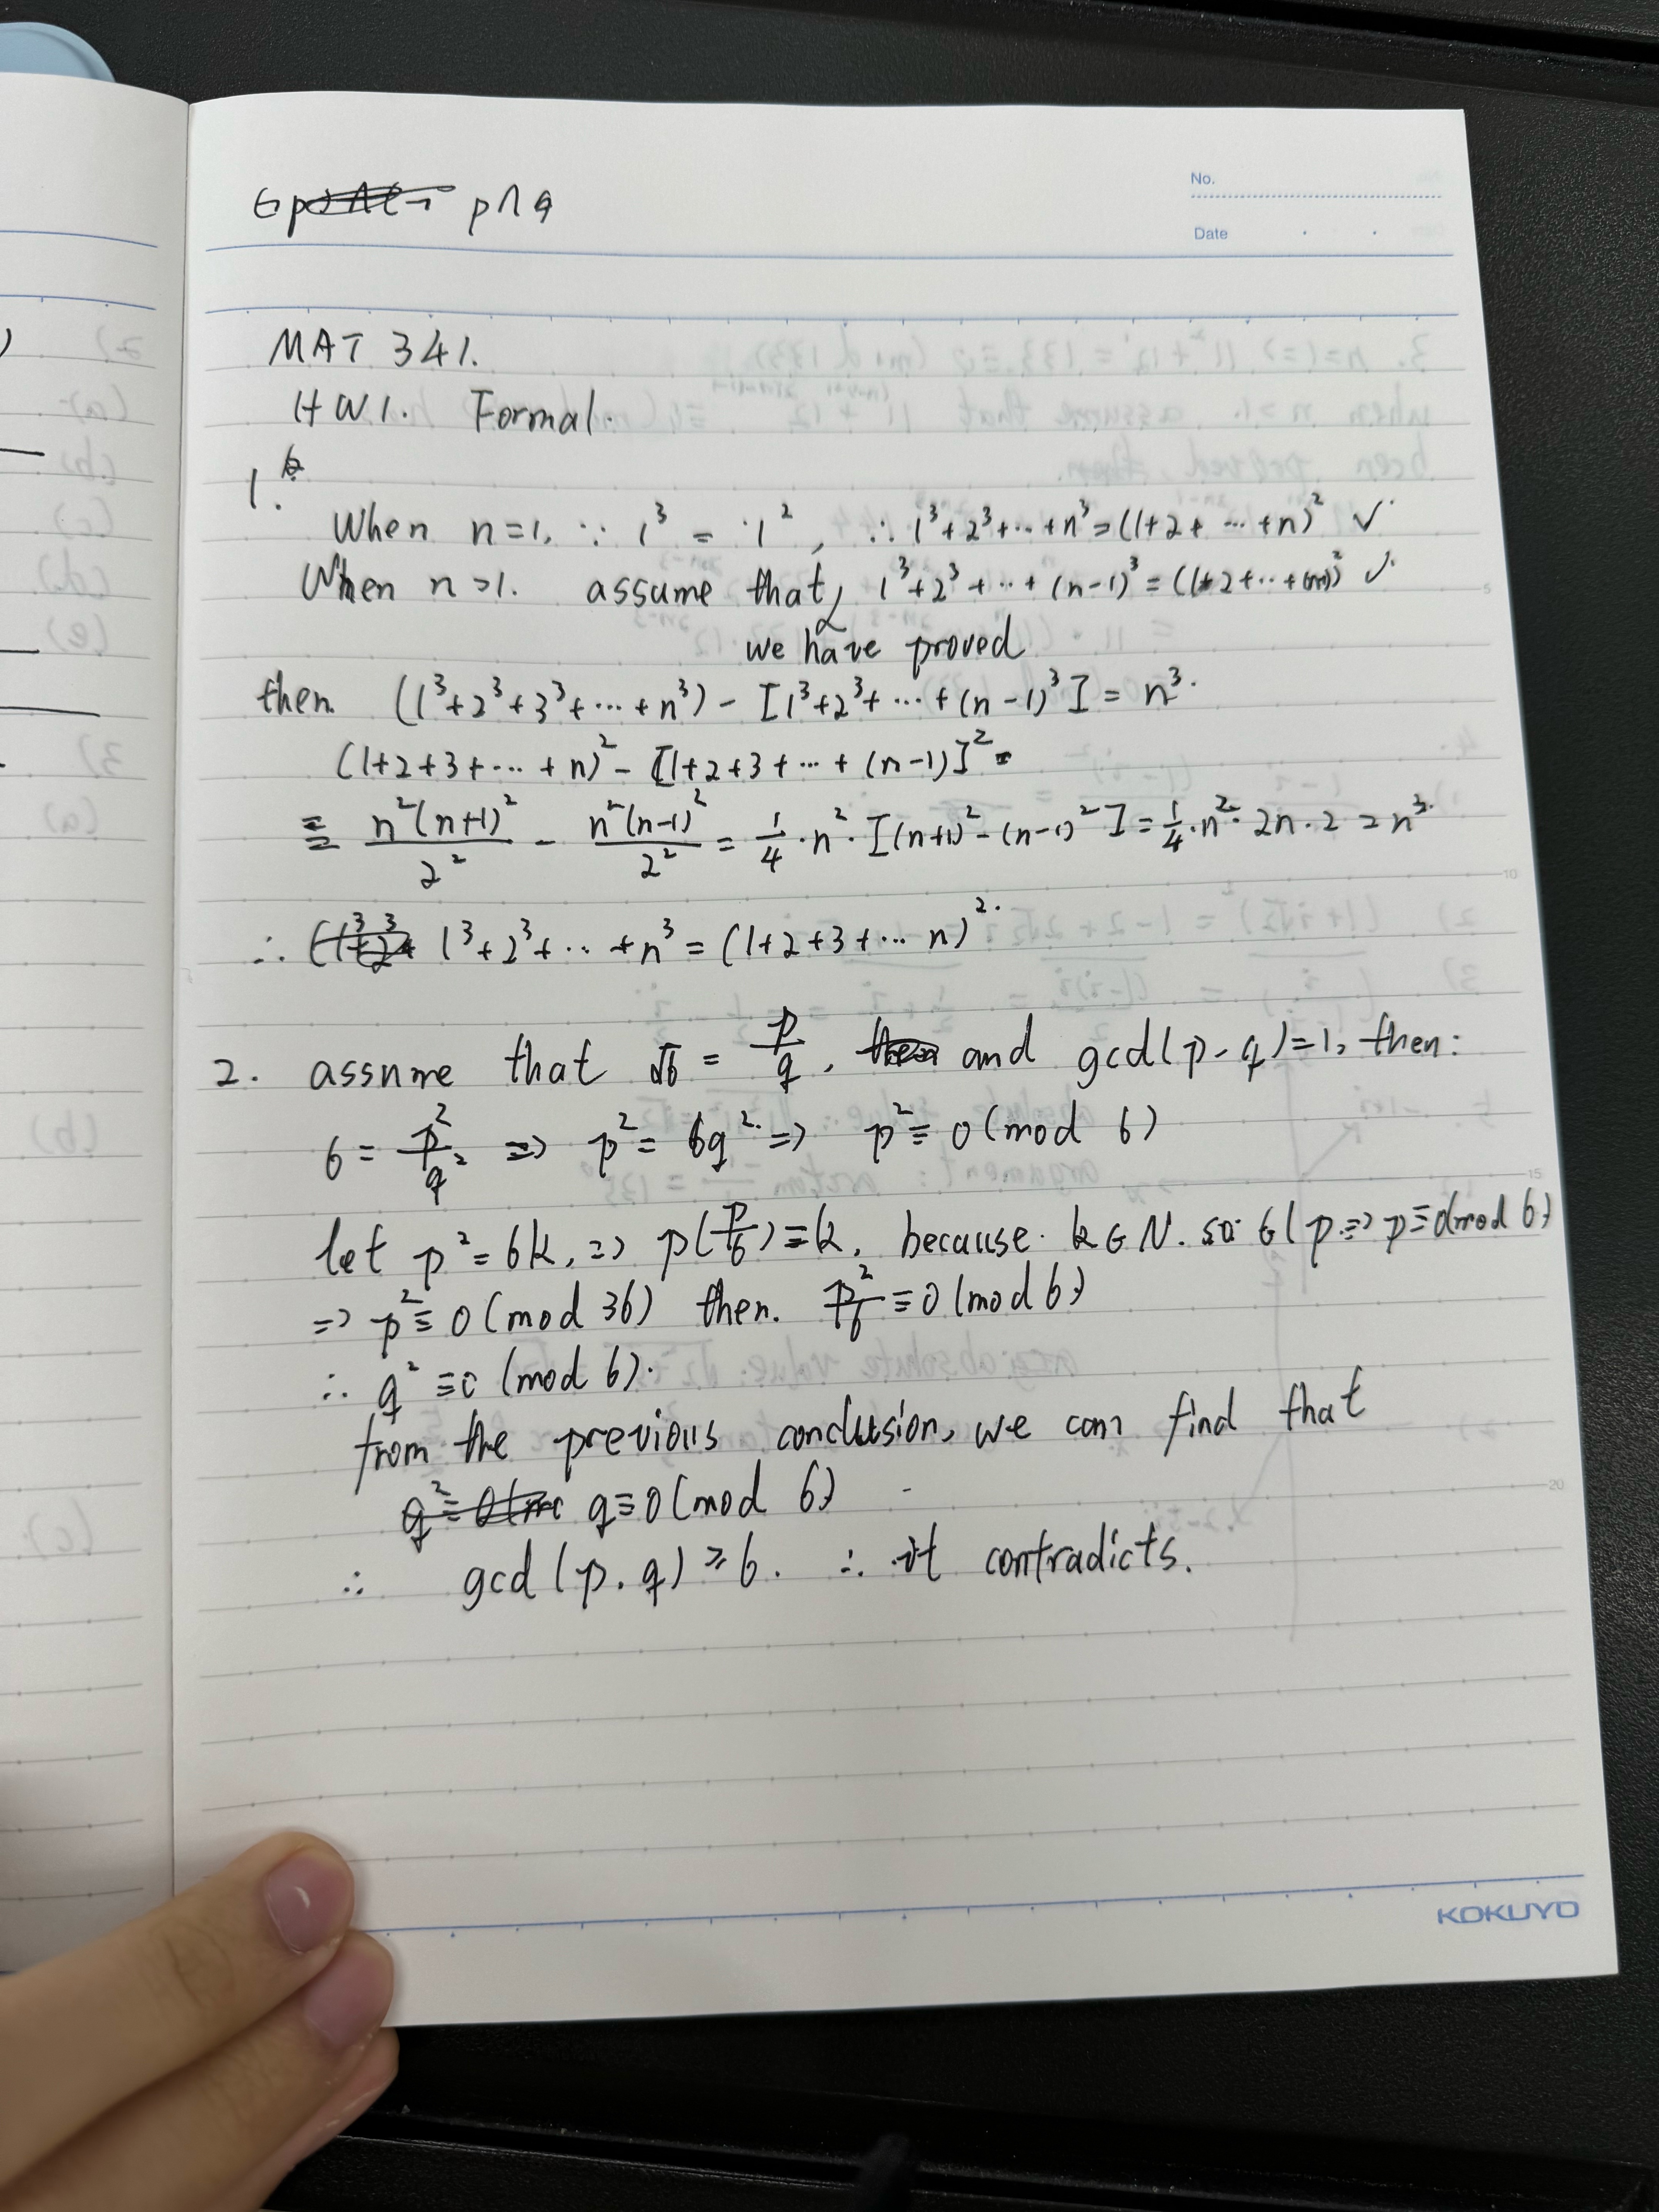 p∧q
No.
Date
MAT 341.
HW1. Formal.
1.
When n=1, ∵ 1³ = 1², ∴ 1³+2³+···+n³=(1+2+···+n)² ✓
When n>1. assume that, 1³+2³+···+(n-1)³=(1+2+···+(n-1))² ✓
we have proved
then (1³+2³+3³+···+n³)-[1³+2³+···+(n-1)³]=n³.
(1+2+3+···+n)²-[1+2+3+···+(n-1)]²=
= n²(n+1)²/2² - n²(n-1)²/2² = 1/4·n²·[(n+1)²-(n-1)²]=1/4·n²·2n·2=n³.
∴ 1³+2³+···+n³=(1+2+3+···n)².
2. assume that √6 = p/q, and gcd(p,q)=1, then:
6 = p²/q² => p²=6q². => p²≡0(mod 6)
let p²=6k, => p(p/6)=k, because k∈N. so 6|p => p≡0(mod 6)
=> p²≡0(mod 36) then. p²/6≡0(mod 6)
∴ q²≡0(mod 6).
from the previous conclusion, we can find that
q≡0(mod 6)
∴ gcd(p,q)≥6. ∴ it contradicts.
5
10
15
20
KOKUYO